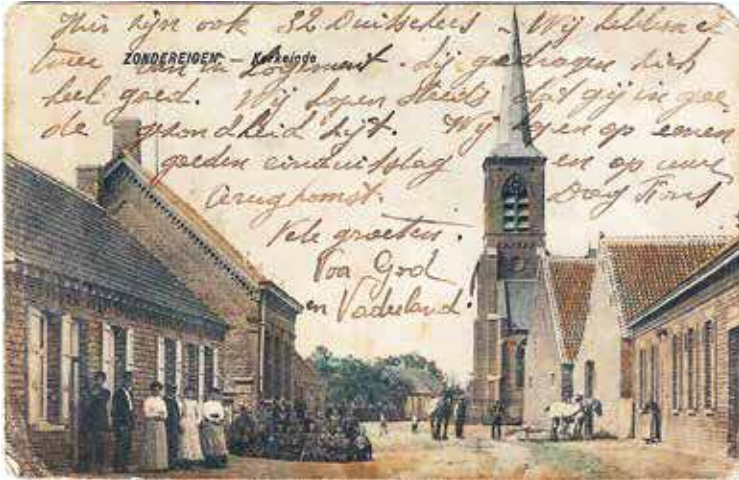 Hier zijn ook 32 Duitschers - Wij hebben er
twee van in Logement. Zij gedragen zich
ZONDEREIGEN. — Kerkeinde
heel goed. Wij hopen steeds dat gij in goe
de gezondheid zijt. Wij hopen op eenen
goeden einduitslag en op uwe
terugkomst. Dag Fons
Vele groeten.
Voor God
en Vaderland.